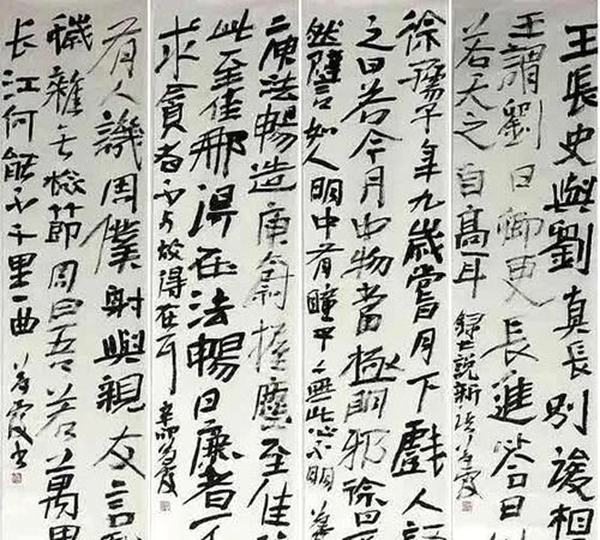 王長史與劉真長別後相
王謂劉曰卿更長進答曰
若天之自高耳 錄世說新語
徐孺子年九歲嘗月下戲人語
之曰若令月中物當極明邪徐曰
然譬言如人眼中有瞳子無此必不明
庾法暢造庾太尉握麈至佳
此至佳那得在法暢曰廉者不
求貪者不與故得在耳
有人譏周僕射與親友言戲
穢雜無檢節周曰吾若萬里
長江何能不千里一曲